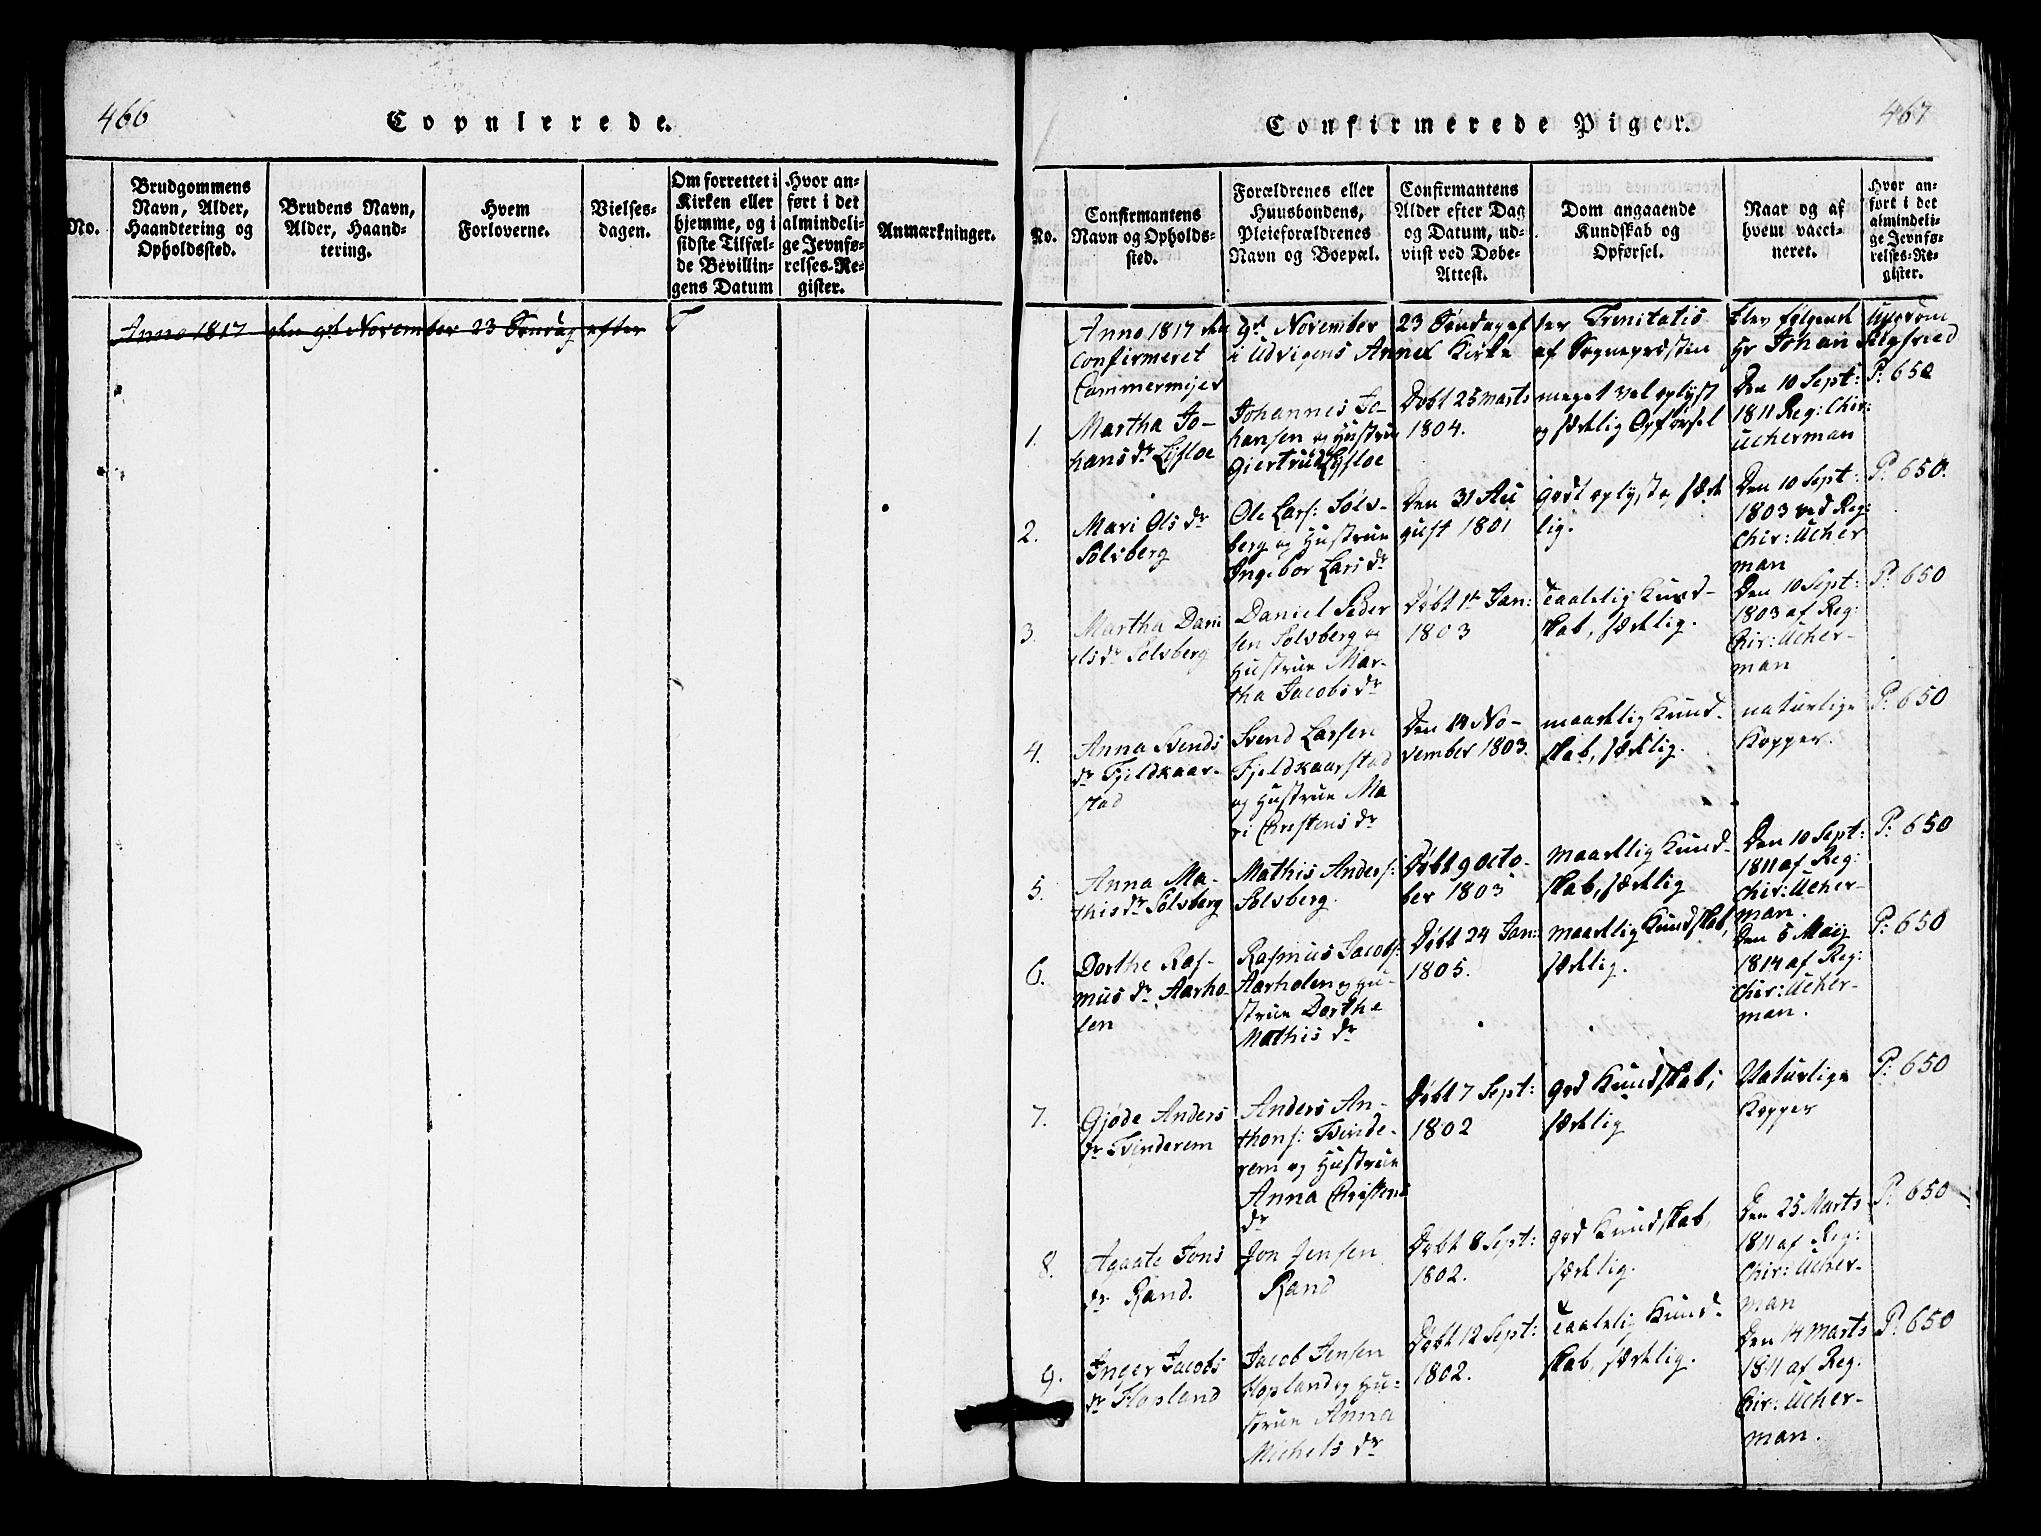 466
Copulerede.
No.
Brudgommens
Navn, Alder,
Haandtering og
Opholdssted.
Brudens Navn,
Alder, Haand-
tering.
Hvem
Forloverne.
Vielses-
dagen.
Om forrettet i
Kirken eller
hjemme, og i
sidste Tilfæl-
de Bevillin-
gens Datum
Hvor an-
ført i det
almindeli-
ge Jevnfø-
relses-Re-
gister.
Anmærkninger.
Anno 1817 den 9t November 23 Søndag efter T
467
Confirmerede Piger.
No.
Confirmantens
Navn og Opholds-
sted.
Forældrenes eller
Huusbondens,
Pleieforældrenes
Navn og Boepæl.
Confirmantens
Alder efter Dag
og Datum, ud-
viist ved Døbe-
Attest.
Dom angaaende
Kundskab og
Opførsel.
Naar og af
hvem vacci-
neret.
Hvor an-
ført i det
almindeli-
ge Jevnfø-
relses-Re-
gister.
Anno 1817 den 9t November 23 Søndag efter Trinitatis blev følgende
Confirmeret i Udvigens Annex Kirke af Sognepræsten Hr Johan Sigfried
Cammermejer
1.
Martha Jo-
hans dr
Johannes Jo-
hansen og Hustrue
Giertrud
Døbt 25 Marts
1804.
meget vel oplyst
og sædelig Opførsel
Den 10 Sept:
1811 Reg: Chir:
Ucherman
P: 650
2.
Mari Ols dr
Solsberg
Ole Lars: Sols-
berg og Hustrue
Ingebor Lars dr
Den 31 Au
gust 1801
godt oplyst, sæde
lig.
Den 10 Sept:
1803 ved Reg:
Chir: Ucher
man
P: 650.
3.
Martha Dani
els dr Solsberg
Daniel Peder
sen Solsberg og
Hustrue Mar-
tha Jacobs dr
Døbt 1t Jan:
1803
Taalelig Kund-
skab, sædelig.
Den 10 Sept:
1803 af Reg:
Chir: Ucher-
man
P: 650
4.
Anna Svends
dr Fjeldkaar-
stad
Svend Larsen
Fjeldkaarstad
og Hustrue Ma
ri Christens dr
Den 14 No-
vember 1803.
maadelig Kund-
skab, sædelig.
naturlige
Kopper.
P: 650
5.
Anna Ma-
this dr Solsberg
Mathis Anders:
Solsberg.
Døbt 9 Octo-
ber 1803
Maadelig Kund-
skab, sædelig
Den 10 Sept:
1811 af Reg:
Chir: Ucher-
man.
P: 650
6.
Dorthe Ras-
mus dr Aarho-
len
Rasmus Jacobs:
Aarholen og Hu-
strue Dorthe
Mathis dr
Døbt 24 Jan:
1805.
maadelig Kundskab,
sædelig.
Den 5 Maij
1814 af Reg:
Chir: Ucher-
man.
P: 650
7.
Gjøde Anders
dr Tvinderem
Anders An-
thons: Tvinde-
rem og Hustrue
Anna Christens
dr
Døbt 7 Sept:
1802
god Kundskab,
sædelig
Naturlige
Kopper
P: 650
8.
Agaate Jons
dr Rand.
Jon Jensen
Rand
Døbt 8 Sept:
1802.
god Kundskab,
sædelig.
Den 25 Marts
1811 af Reg:
Chir: Ucher-
man
P: 650
9.
Inger Jacobs
dr Hopland
Jacob Jensen
Hopland og Hu-
strue Anna
Michels dr
Døbt 12 Sept:
1802.
Taalelig Kund-
skab, sædelig.
Den 14 Marts
1811 af Reg.
Chir: Ucher-
man.
P: 650